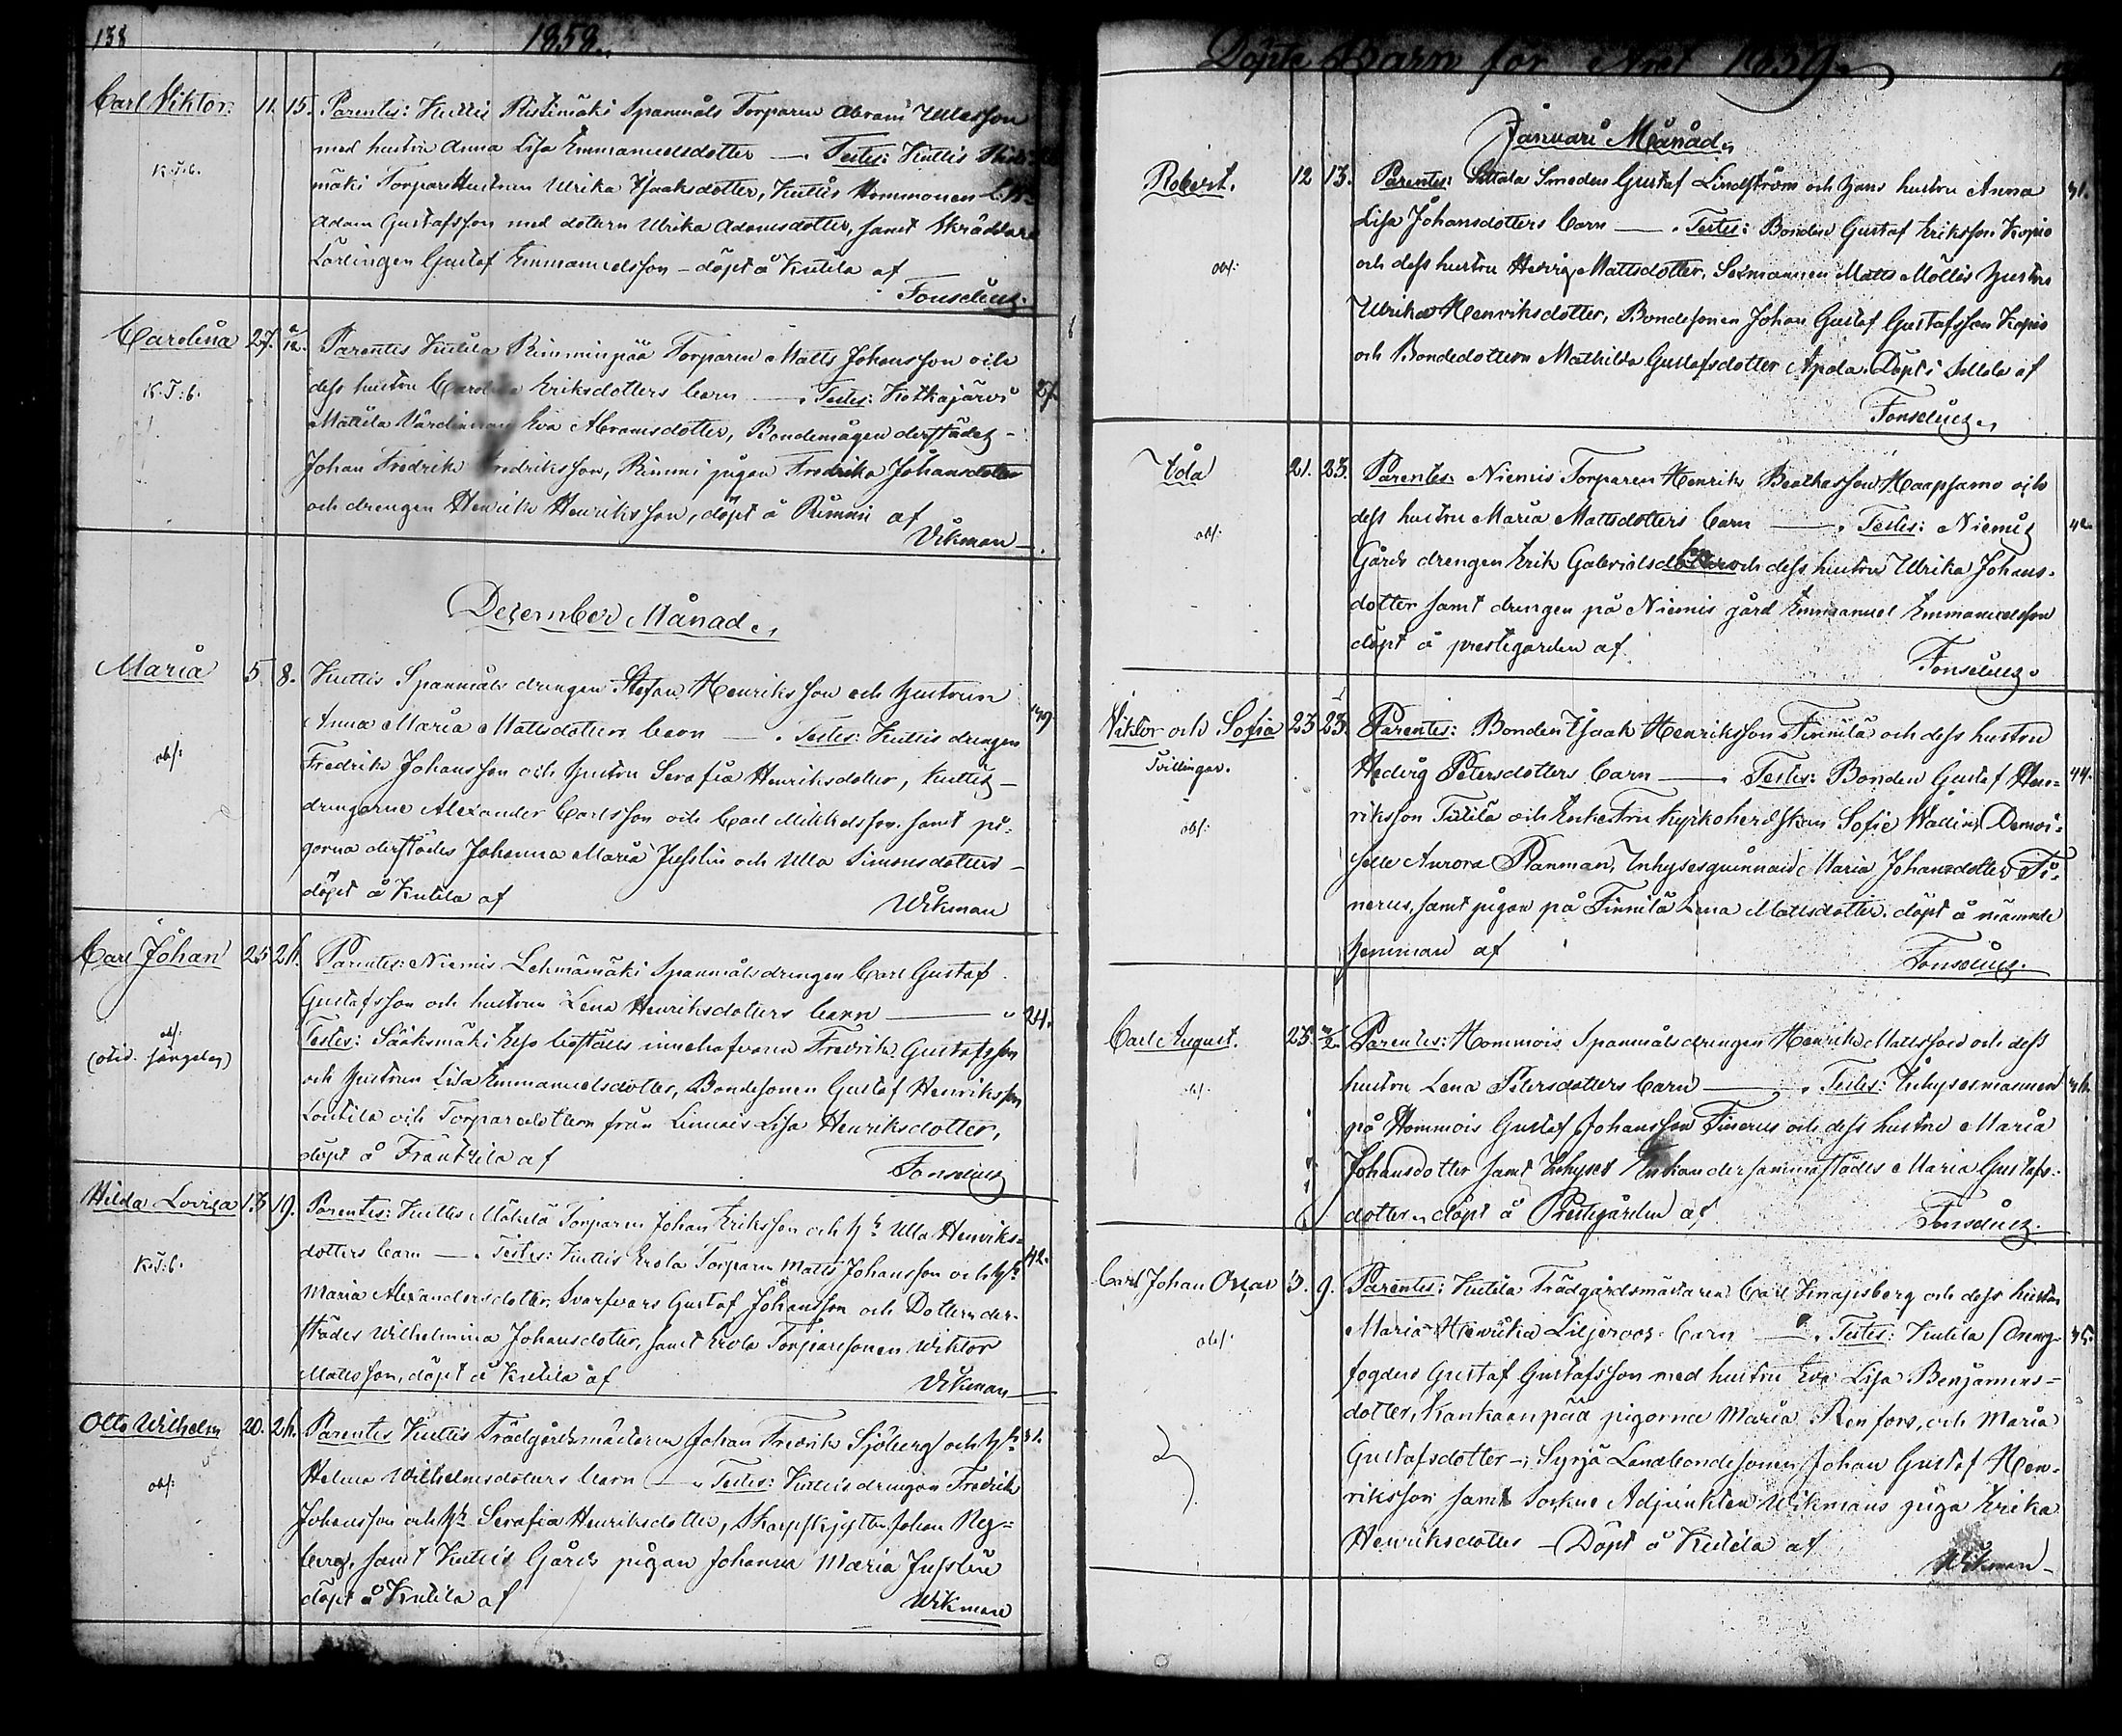 138
1858.
Carl Viktor. 11. 15. Parentes: Kuttis Ristimäki Spanmåls Torparen Abram
K.T.6. med hustru Anna Lisa Emmanuelsdotter —. Testes: Kuttis
mäki Torpare Hustrun Ulrika Isaaksdotter, Kuttis Hommonen
Adam Gustafsson med dottern Ulrika Adamsdotter, samt Skräddare
Lärlingen Gustaf Emmanuelsson – döpt å Kutila af
Fonselius.
Carolina 27. Parentes Kutila Rimminpää Torparen Matts Johansson och
K.T.6. dess hustru Carolina Eriksdotters barn —. Testes: Kotkajärvi 27.
Mattila Värdinnan Eva Abramsdotter, Bondemågen derstädes –
Johan Fredrik Fredriksson, Rimmi pigan Fredrika Johansdotter
och drengen Henrik Henriksson, döpt å Rimmi af
Vikman
December Månad.
Maria 5. 8. Kuttis Spanmåls drengen Stefan Henriksson och hustrun
Anna Maria Mattsdotters barn —. Testes: Kuttis drengen
obs: Fredrik Johansson och hustru Serafia Henriksdotter, Kuttis –
drengarne Alexander Carlsson och Carl Mikkelsson samt pi-
gorna derstädes Johanna Maria Jusslin och Ulla Simonsdotter –
döpt å Kutila af Wikman
Carl Johan 25 26. Parentes: Niemis Lehmämäki Spanmålsdrengen Carl Gustaf
Gustafsson och hustrun Lena Henriksdotters barn — 24.
obs: Testes: Sääksmäki innehafvaren Fredrik Gustafsson
och hustrun Lisa Emmanuelsdotter, Bondesonen Gustaf Henriksson
Loutila och Torparedottern från Linnais Lisa Henriksdotter,
döpt å Frantsila af Fonselius
Hilda Loviza 13 19. Parentes: Kuttis Mäkelä Torparen Johan Eriksson och Ulla Henriks-
K.T.6. dotters barn —. Testes: Kuttis Erola Torparen Matts Johansson och 42.
Maria Alexandersdotter, Svarfvars Gustaf Johansson och Dottern der-
städes Wilhelmina Johansdotter, samt Erola Torparesonen Wiktor
Mattsson, döpt å Kutila af Vikman
Otto Wilhelm 20. 26. Parentes Kuttis Trädgårdsmästaren Johan Fredrik Sjöberg och 31.
obs: Helena Wilhelmsdotters barn —. Testes: Kuttis drengen Fredrik
Johansson och Serafia Henriksdotter, Skarpskytten Johan Ny-
berg, samt Kuttis Gårds pigan Johanna Maria Jusslin
döpt å Kutila af Wikman
Döpte Barn för Året 1859.
Januari Månad.
Robert. 12 13. Parentes: Sittala Smeden Gustaf Lindström och hans hustru Anna 31.
Lisa Johansdotters barn —. Testes: Bonden Gustaf Eriksson Kopio
obs: och dess hustru Hedvig Mattsdotter, Sexmannen Matts Möllis hustru
Ulrika Henriksdotter, Bondesonen Johan Gustaf Gustafsson Kopio
och Bondedottern Mathilda Gustafsdotter Apola. Döpt i Sittala af
Fonselius.
Ida 21. 23. Parentes: Niemis Torparen Henrik Haapsamo och
obs: dess hustru Maria Mattsdotters barn —. Testes: Niemis 42.
Gårds drengen Erik Gabrielsson och dess hustru Ulrika Johans-
dotter samt drengen på Niemis gård Emmanuel Emmanuelsson
döpt å prestegården af
Fonselius.
Viktor och Sofia 23 23. Parentes: Bonden Isaak Henriksson Finnilä och dess hustru
Tvillingar. Hedvig Petersdotters barn —. Testes: Bonden Gustaf Hen- 44.
obs: riksson Tutila och EnkeFru Kyrkoherdskan Sofie Wadén, Demoi-
selle Aurora Planman, Inhysesqvinnan Maria Johansdotter Ti-
nerus, samt pigan på Finnilä Lena Mattsdotter. döpt å nämnde
hemman af Fonselius.
Carl August. 25. Parentes: Hommois Spanmålsdrengen Henrik Mattsson och dess
obs: hustru Lena Petersdotters barn —. Testes: Inhysesmannen 36.
på Hommois Gustaf Johansson Tinerus och dess hustru Maria
Johansdotter samt Inhyses Enkan dersammastädes Maria Gustafs-
dotter, döpt å Prestegården af Fonselius.
Carl Johan Oskar 3. 9. Parentes: Kutila Trädgårdsmästaren Carl Knapsberg och dess hustru
obs: Maria Henrika Liljeroos barn —. Testes: Kutila Dreng- 35.
fogden Gustaf Gustafsson med hustru Eva Lisa Benjamins-
dotter, Kankaanpää pigorna Maria Renfors, och Maria
Gustafsdotter –, Syrjä Landbondesonen Johan Gustaf Hen-
riksson samt Sockne Adjunkten Wikmans piga Erika
Henriksdotter – Döpt å Kutila af
Wikman